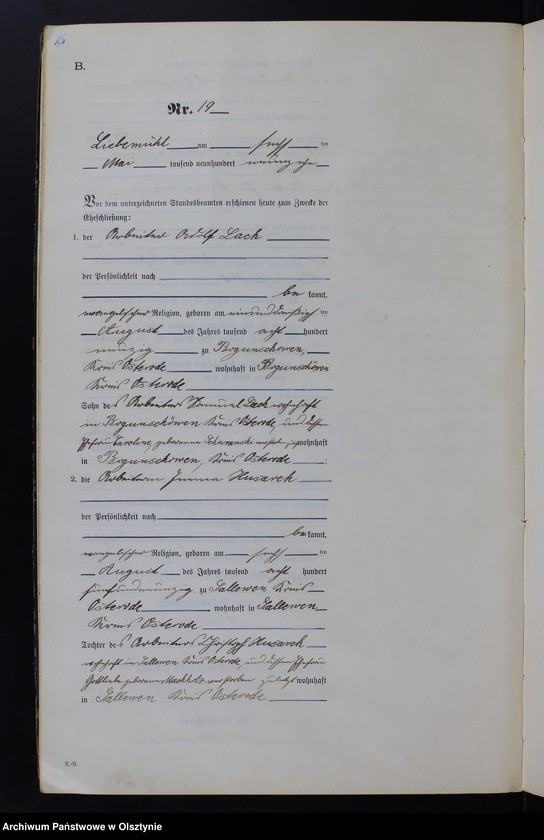 B.
Nr. 19.
Liebemühl am sechs ten
Mai tausend neunhundert neunzehn
Vor dem unterzeichneten Standesbeamten erschienen heute zum Zwecke der
Eheschließung:
1. der Arbeiter Adolf Lach
der Persönlichkeit nach
be kannt,
evangelischer Religion, geboren am einunddreißig ten
August des Jahres tausend acht hundert
neunzig zu Bogunschöwen,
Kreis Osterode wohnhaft in Bogunschöwen
Kreis Osterode
Sohn des Arbeiters Samuel Lach wohnhaft
in Bogunschöwen Kreis Osterode, und dessen
Ehefrau Caroline, geborene wohnhaft
in Bogunschöwen, Kreis Osterode ;
2. die Arbeiterin Emma Husarek
der Persönlichkeit nach
be kannt,
evangelischer Religion, geboren am sechs ten
August des Jahres tausend acht hundert
fünfundneunzig zu Sallewen Kreis
Osterode wohnhaft in Sallewen
Kreis Osterode
Tochter des Arbeiters Christoph Husarek
wohnhaft in Sallewen Kreis Osterode, und dessen Ehefrau
Gottliebe geborene verstorben zuletzt wohnhaft
in Sallewen Kreis Osterode
Archiwum Państwowe w Olsztynie